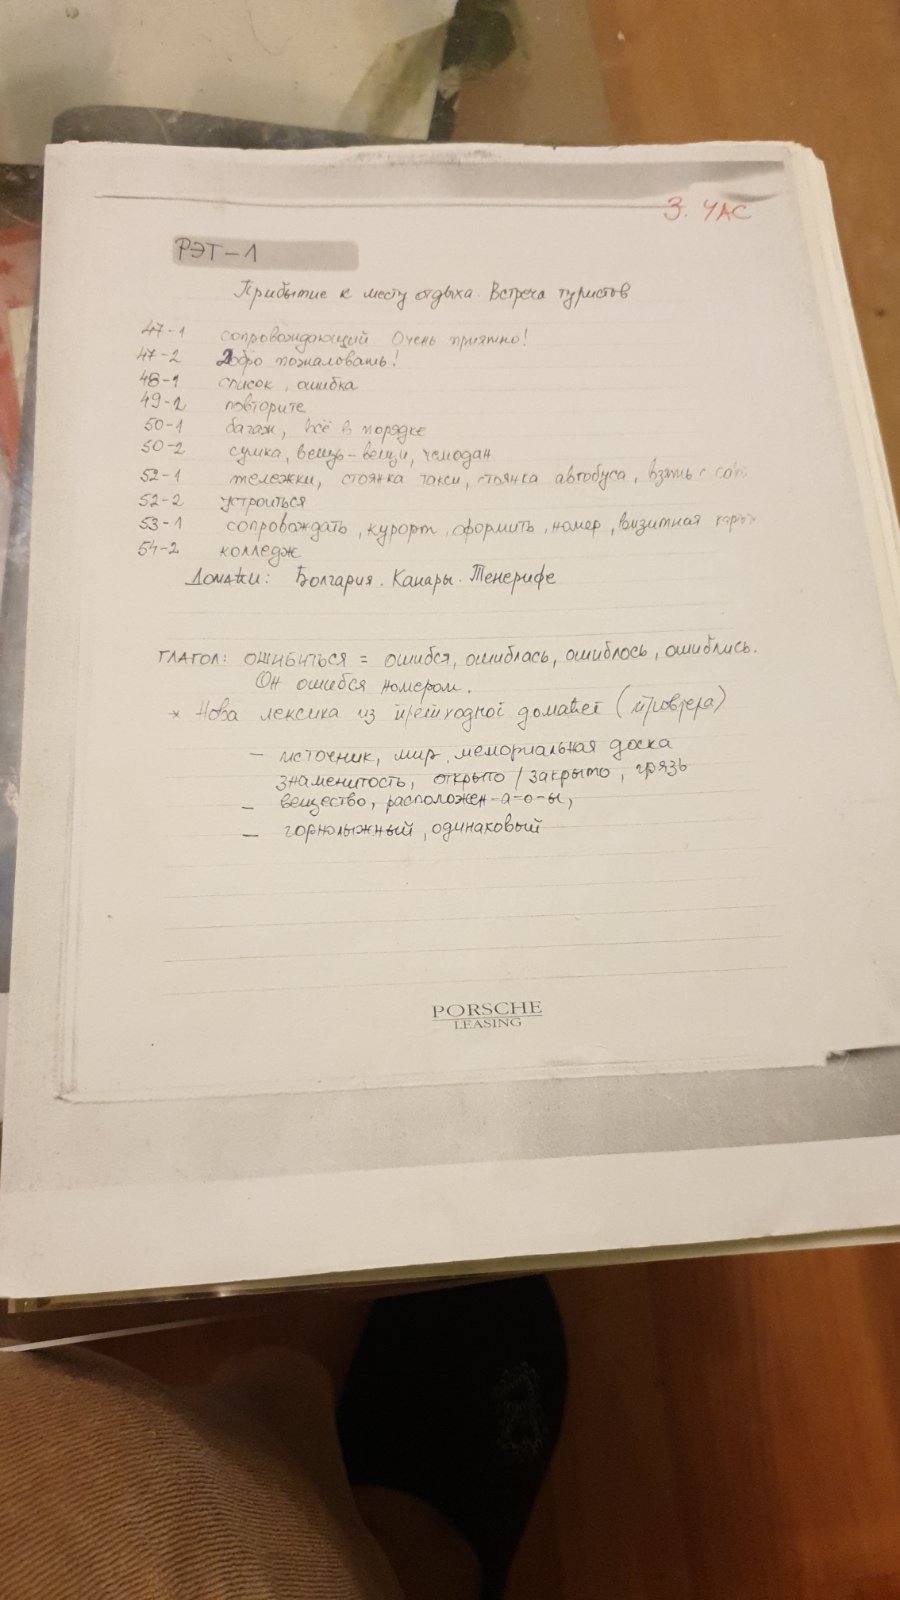 3. ЧАС
РЭТ-1
Прибытие к месту отдыха. Встреча туристов
47-1 сопровождающий Очень приятно!
47-2 Добро пожаловать!
48-1 список, ошибка
49-2 повторите
50-1 багаж, всё в порядке
50-2 сумка, вещь-вещи, чемодан
52-1 тележки, стоянка такси, стоянка автобуса, взять с
52-2 устроиться
53-1 сопровождать, курорт, оформить, номер, визитная
54-2 колледж
Домаћи: Болгария. Канары. Тенерифе
ГЛАГОЛ: ОШИБИТЬСЯ = ошибся, ошиблась, ошиблось, ошиблись.
Он ошибся номером.
* Нова лексика из претходног домаћег (провера)
– источник, мир, мемориальная доска
знаменитость, открыто / закрыто, грязь
– вещество, расположен-а-о-ы,
– горнолыжный, одинаковый
PORSCHE
LEASING